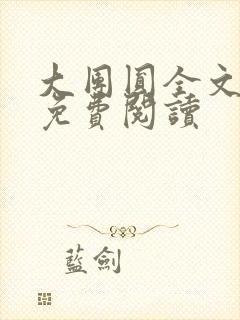 大團圓全文
免費閱讀
藍劍